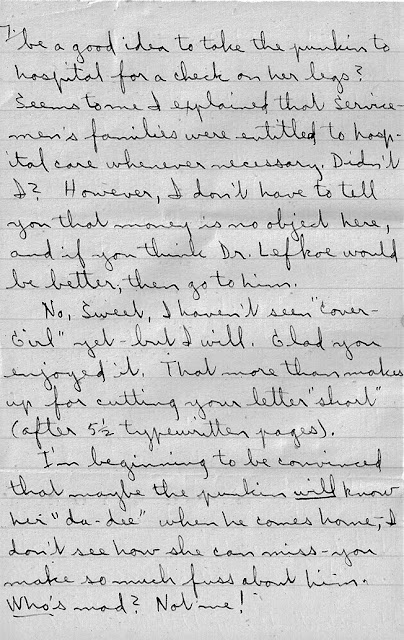 7.
be a good idea to take the punkin to
hospital for a check on her legs?
Seems to me I explained that service-
men's families were entitled to hosp-
ital care whenever necessary, Didn't
I? However, I don't have to tell
you that money is no object here,
and if you think Dr. Lefkoe would
be better, then go to him.
No, Sweet, I haven't seen "Cover-
Girl" yet - but I will. Glad you
enjoyed it. That more than makes
up for cutting your letter "short"
(after 5½ typewritten pages).
I'm beginning to be convinced
that maybe the punkin will know
her "da-dee" when he comes home, I
don't see how she can miss - you
make so much fuss about him.
Who's mad? Not me!